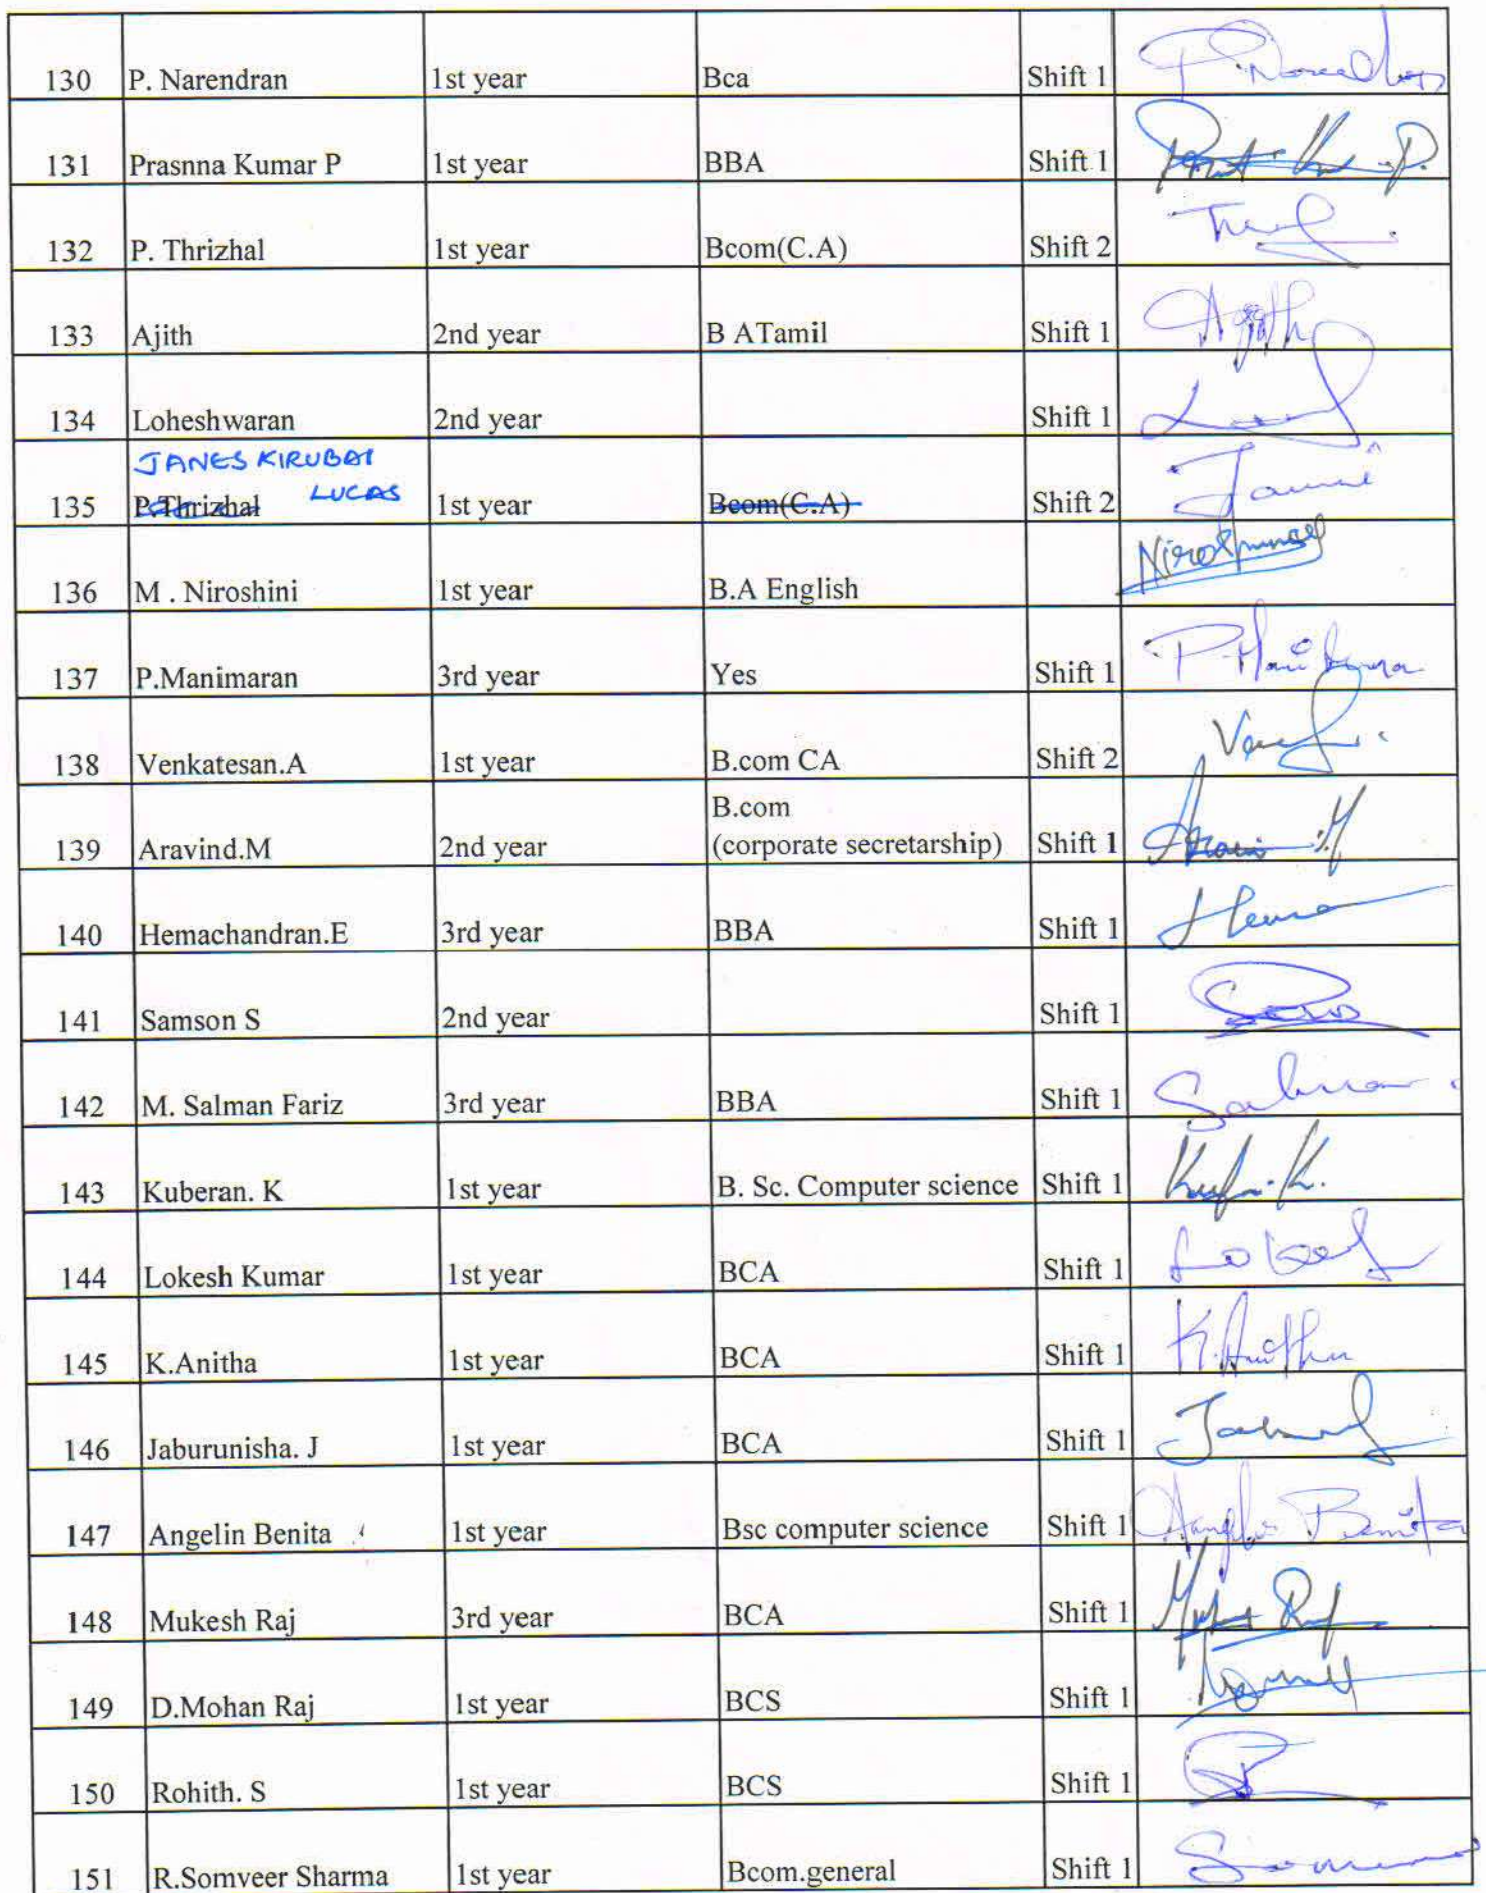 130 P. Narendran 1st year Bca Shift 1
131 Prasnna Kumar P 1st year BBA Shift 1
132 P. Thrizhal 1st year Bcom(C.A) Shift 2
133 Ajith 2nd year B ATamil Shift 1
134 Loheshwaran 2nd year Shift 1
JANES KIRUBAI
LUCAS
135 P.Thrizhal 1st year Bcom(C.A) Shift 2
136 M . Niroshini 1st year B.A English
137 P.Manimaran 3rd year Yes Shift 1
138 Venkatesan.A 1st year B.com CA Shift 2
B.com
139 Aravind.M 2nd year (corporate secretarship) Shift 1
140 Hemachandran.E 3rd year BBA Shift 1
141 Samson S 2nd year Shift 1
142 M. Salman Fariz 3rd year BBA Shift 1
143 Kuberan. K 1st year B. Sc. Computer science Shift 1
144 Lokesh Kumar 1st year BCA Shift 1
145 K.Anitha 1st year BCA Shift 1
146 Jaburunisha. J 1st year BCA Shift 1
147 Angelin Benita 1st year Bsc computer science Shift 1
148 Mukesh Raj 3rd year BCA Shift 1
149 D.Mohan Raj 1st year BCS Shift 1
150 Rohith. S 1st year BCS Shift 1
151 R.Somveer Sharma 1st year Bcom.general Shift 1